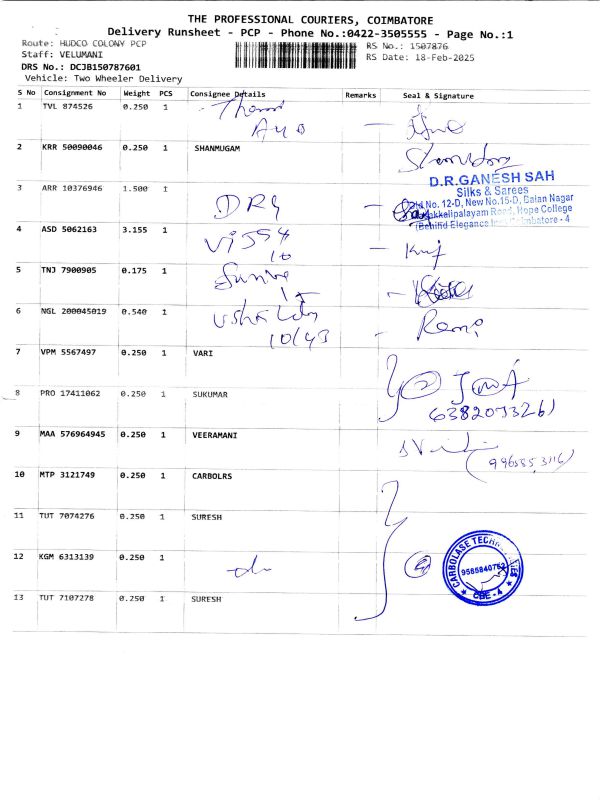 THE PROFESSIONAL COURIERS, COIMBATORE
Delivery Runsheet - PCP - Phone No.:0422-3505555 - Page No.:1
Route: HUDCO COLONY PCP
RS No.: 1507876
Staff: VELUMANI
RS Date: 18-Feb-2025
DRS No.: DCJB150787601
Vehicle: Two Wheeler Delivery
S No Consignment No Weight PCS Consignee Details Remarks Seal & Signature
1 TVL 874526 0.250 1
2 KRR 50090046 0.250 1 SHANMUGAM
D.R.GANESH SAH
Silks & Sarees
Old No. 12-D, New No.15-D, Balan Nagar
Road, Hope College
Coimbatore - 4
3 ARR 10376946 1.500 1
4 ASD 5062163 3.155 1
5 TNJ 7900905 0.175 1
6 NGL 200045019 0.540 1 Usha
10/43
7 VPM 5567497 0.250 1 VARI
8 PRO 17411062 0.250 1 SUKUMAR
9 MAA 576964945 0.250 1 VEERAMANI
10 MTP 3121749 0.250 1 CARBOLRS
11 TUT 7074276 0.250 1 SURESH
12 KGM 6313139 0.250 1 -do
CARBOLASE
9585840762
CBE - 4
13 TUT 7107278 0.250 1 SURESH